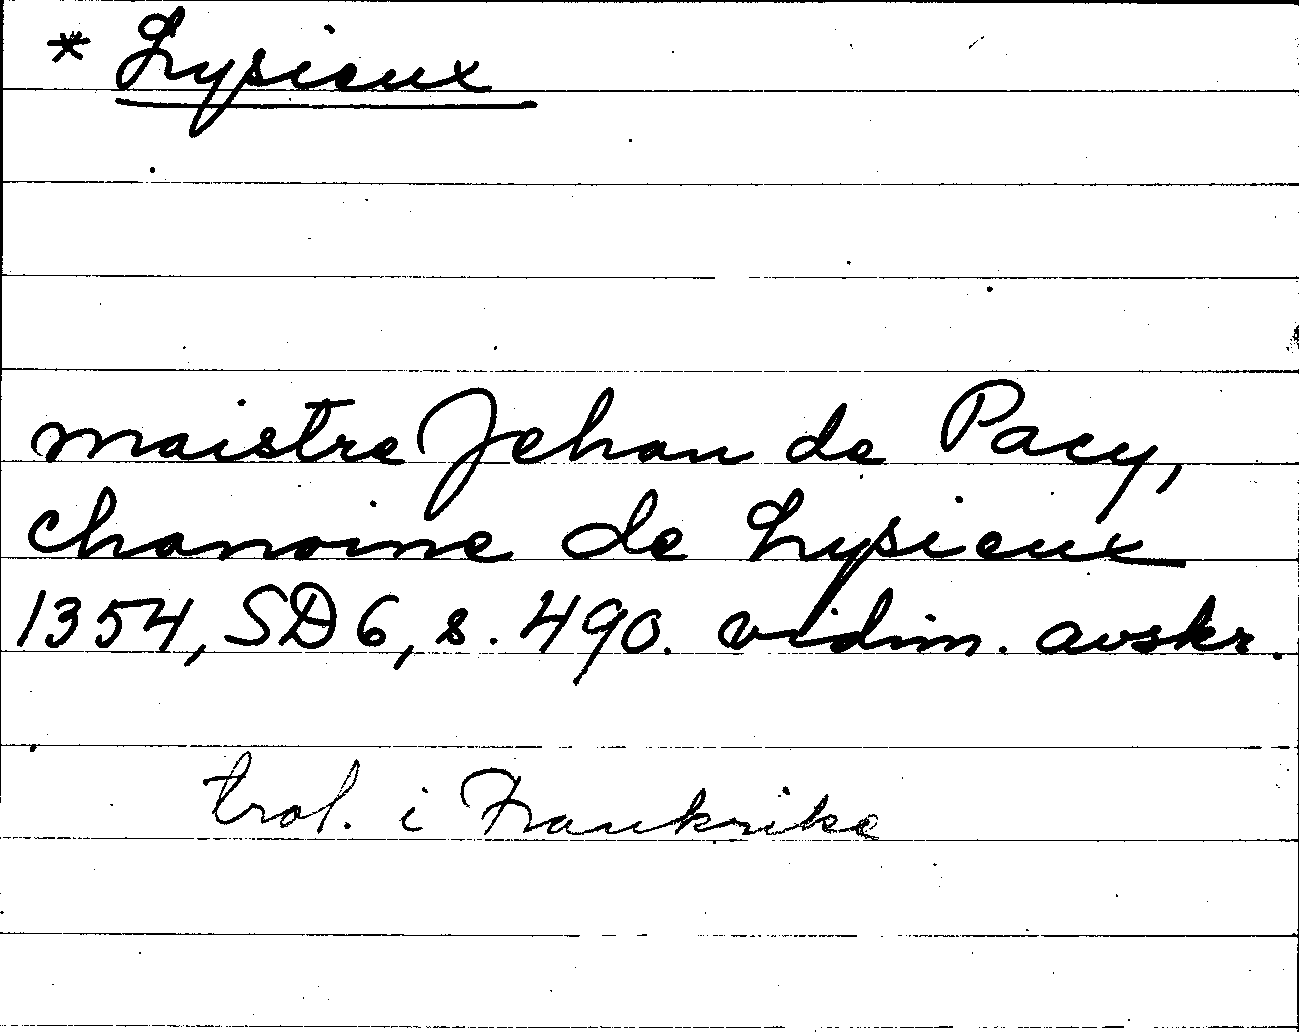 * Lysieux
maistre Jehan de Pacy,
chanoine de Lysieux
1354, SD 6, s. 490. vidim. avskr.
trol. i Frankrike